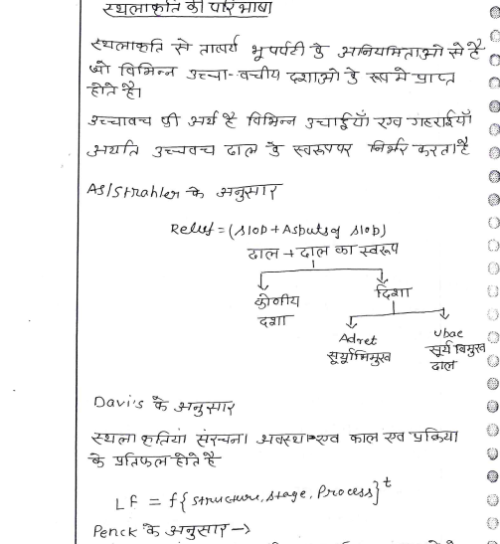 स्थलाकृति की परिभाषा
स्थलाकृति से तात्पर्य भूपर्पटी के अनियमिताओ से है
जो विभिन्न उच्चा-वचीय दशाओ के रूप मे प्राप्त
होते है।
उच्चावच की अर्थ है विभिन्न उचाईयाँ एवं गहराईयाँ
अर्थात उच्चवच ढाल के स्वरूप पर निर्भर करता है
AS/Strahler के अनुसार
Relief = (slop + Asputs of slob)
ढाल + ढाल का स्वरूप
कोणीय दिशा
दशा
Adret ubac
सूर्याभिमुख सूर्य विमुख
ढाल
Davi's के अनुसार
स्थलाकृतियां संरचना अवस्था एव काल एव प्रक्रिया
के प्रतिफल होते है
LF = f{structure, stage, Process}t
Penck के अनुसार →